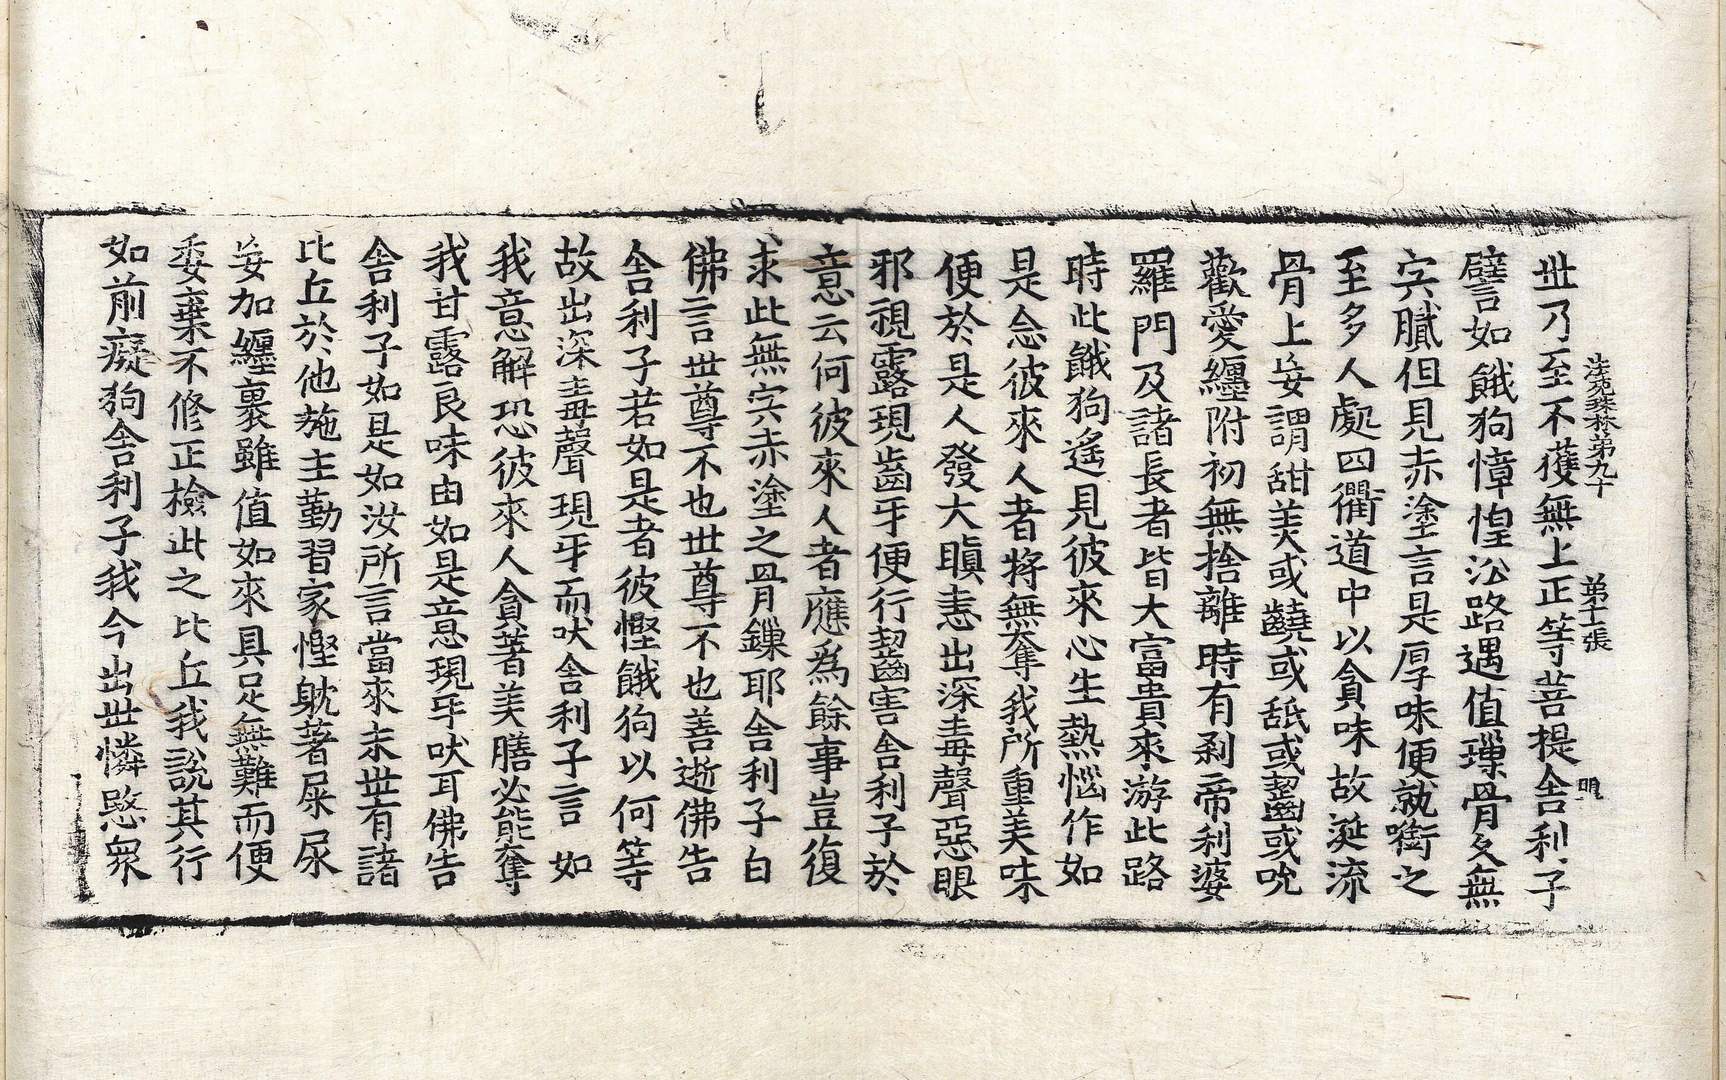 法苑珠林第九十 第十一張 明
世乃至不獲無上正等菩提舍利子
譬如餓狗慞惶㳂路遇值璅骨久無
宍膩但見赤塗言是厚味便就銜之
至多人處四衢道中以貪味故涎流
骨上妄謂甜美或齩或舐或齧或吮
歡愛纏附初無捨離時有刹帝利婆
羅門及諸長者皆大富貴來游此路
時此餓狗遙見彼來心生熱惱作如
是念彼來人者將無奪我所重美味
便於是人發大瞋恚出深毒聲惡眼
邪視露現齒牙便行齧害舍利子於
意云何彼來人者應為餘事豈復
求此無宍赤塗之骨鏁耶舍利子白
佛言世尊不也世尊不也善逝佛告
舍利子若如是者彼慳餓狗以何等
故出深毒聲現牙而吠舍利子言如
我意解恐彼來人貪著美膳必能奪
我甘露良味由如是意現牙吠耳佛告
舍利子如是如汝所言當來末世有諸
比丘於他施主勤習家慳躭著屎尿
妄加纏裹雖值如來具足無難而便
委棄不修正檢此之比丘我說其行
如前癡狗舍利子我今出世憐愍衆